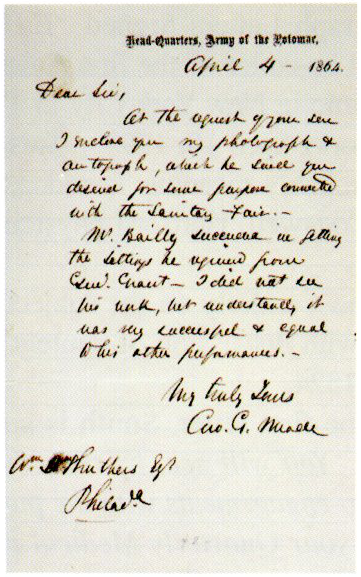 Head-Quarters, Army of the Potomac,
April 4 - 1864.
Dear Sir,
At the request of your son
I enclose you my photograph &
autograph, which he said you
desired for some purpose connected
with the Sanitary Fair. -
Mr. Bailly succeeded in getting
the sittings he required from
Genl. Grant - I did not see
his work, but understand it
was very successful & equal
to his other performances. -
Very truly Yours
Geo. G. Meade
Wm Struthers Esq
Philada